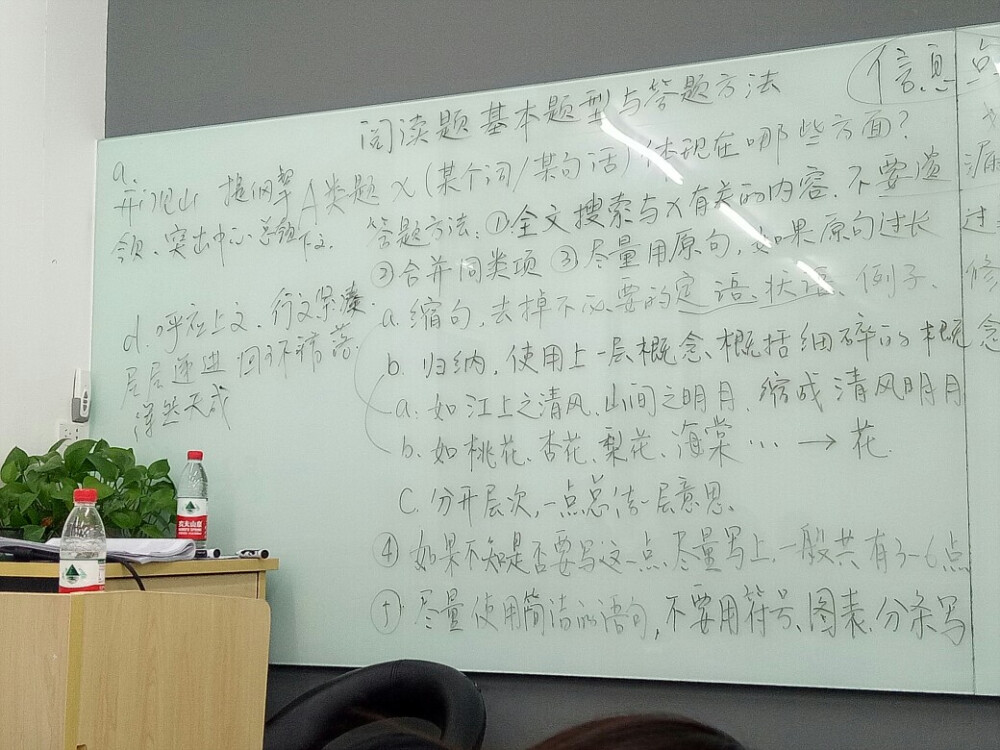 信息
阅读题基本题型与答题方法
A类题 X(某个词/某句话)体现在哪些方面?
答题方法:①全文搜索与X有关的内容.不要遗漏
②合并同类项 ③尽量用原句,如果原句过长
a. 缩句,去掉不必要的定语、状语、例子、修
b. 归纳,使用上一层概念、概括细碎的概念
a: 如江上之清风、山间之明月.缩成清风明月
b. 如桃花、杏花、梨花、海棠…→花
C. 分开层次,一点总结一层意思.
④如果不知是否要写这一点.尽量写上,一般共有3-6点
⑤尽量使用简洁的语句,不要用符号、图表.分条写
a.
开门见山 提纲挈
领.突出中心.总领下文.
d.呼应上文.行文紧凑.
层层递进 回环
浑然天成
农夫山泉